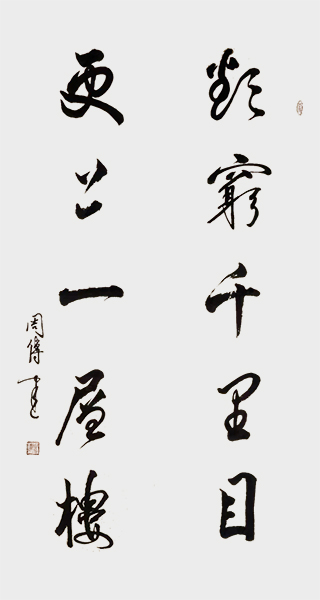 欲窮千里目
更上一層樓
周